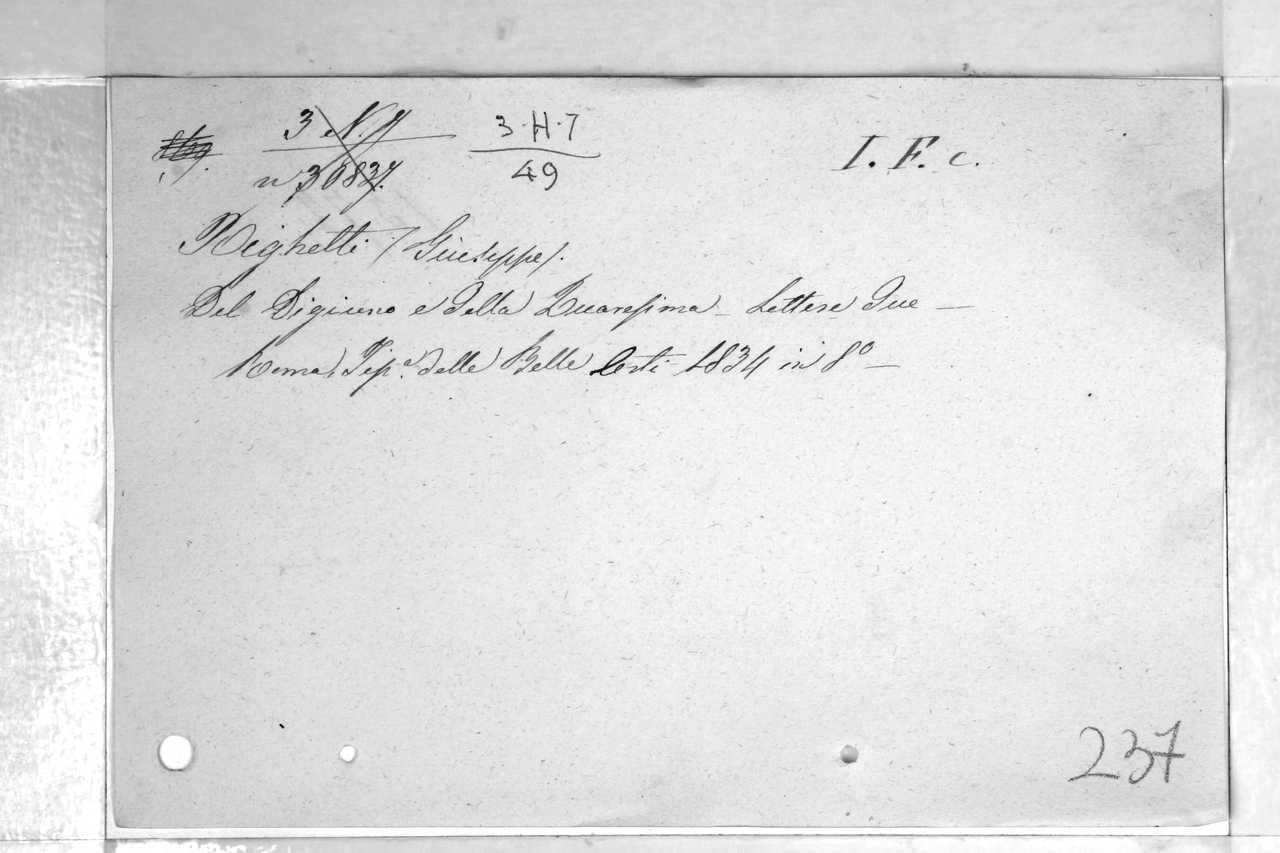 3 N. 7 3·H·7 I. F. c.
n 30837. 49
Righetti (Giuseppe).
Del Digiuno e della Quaresima – Lettere Due –
Roma, Tip.ª delle Belle Arti 1834 in 8º –
237